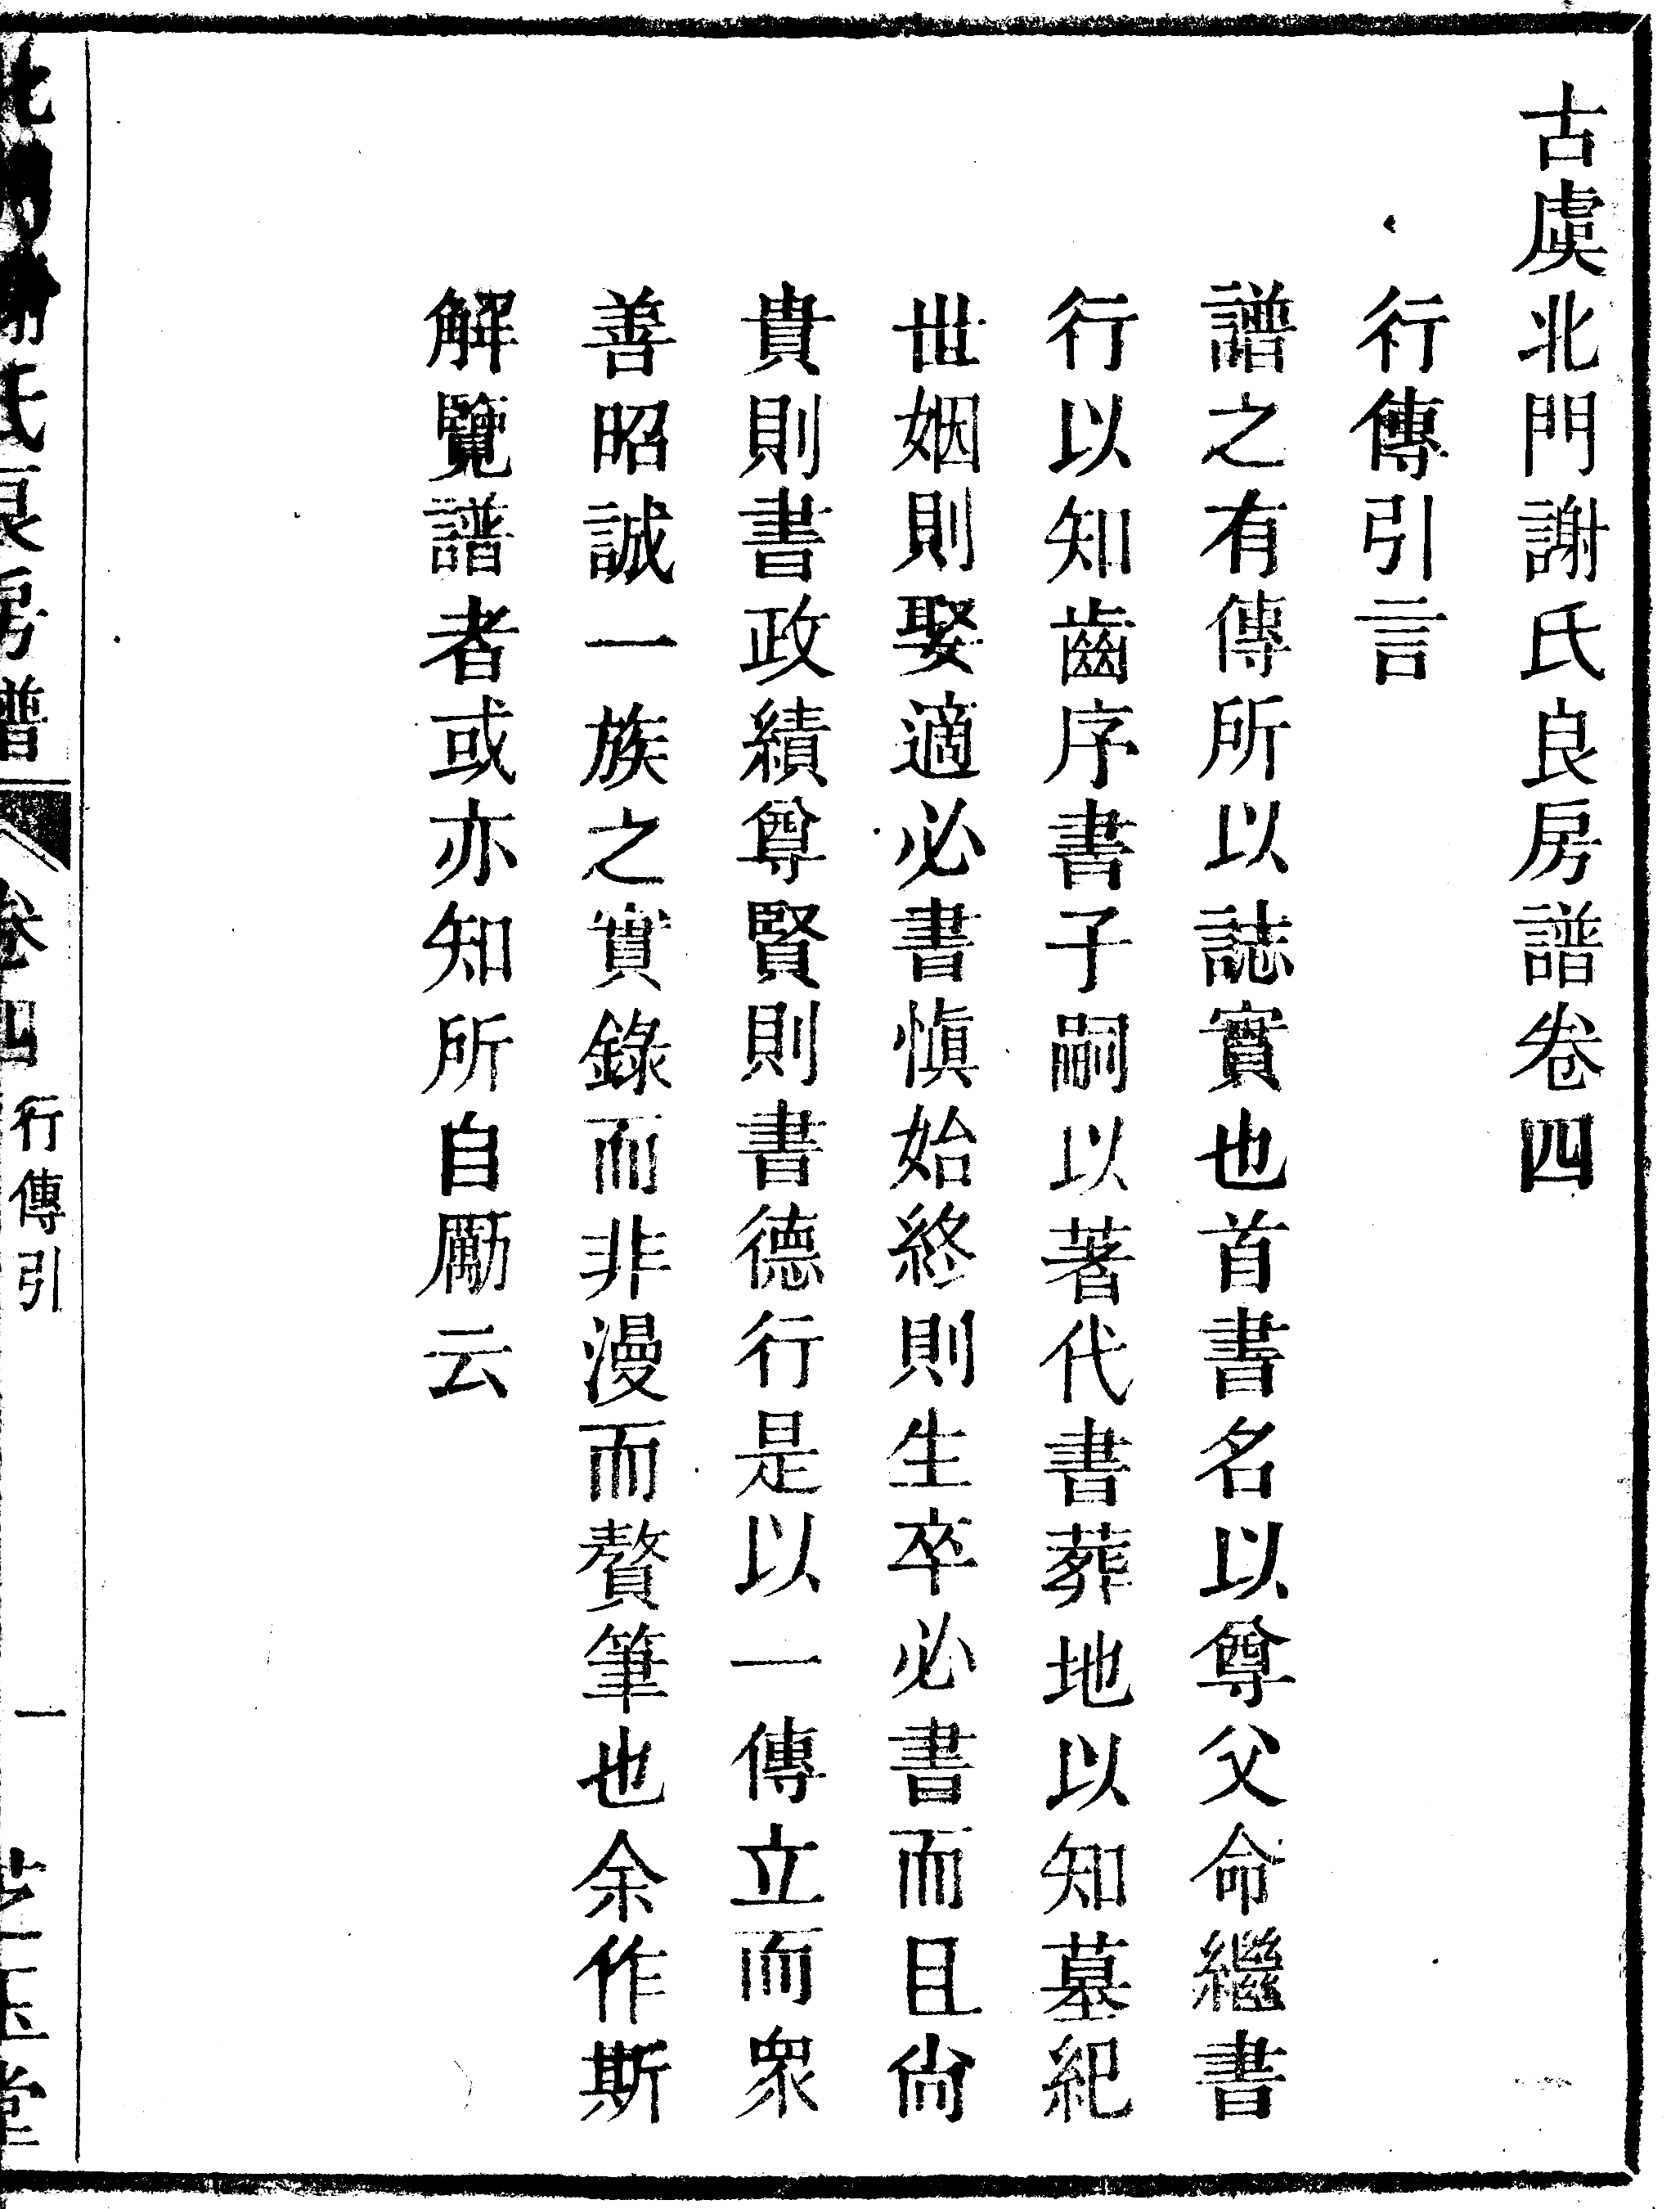 古虞北門謝氏良房譜卷四
行傳引言
譜之有傳所以誌實也首書名以尊父命繼書
行以知齒序書子嗣以著代書葬地以知墓紀
世姻則娶適必書慎始終則生卒必書而且尙
貴則書政績尊賢則書德行是以一傳立而衆
善昭誠一族之實錄而非漫而贅筆也余作斯
解覽譜者或亦知所自勵云
北門謝氏良房譜
卷四
行傳引
一
芝玉堂